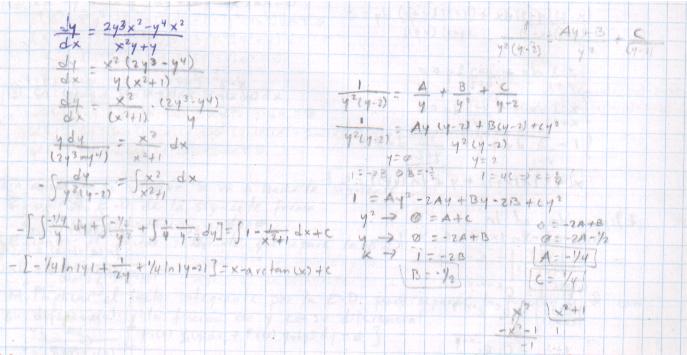 dy/dx = (2y³x² - y⁴x²)/(x²y+y)
dy/dx = x²(2y³ - y⁴)/(y(x²+1))
dy/dx = x²/(x²+1) · (2y³-y⁴)/y
y dy/(2y³-y⁴) = x²/(x²+1) dx
-∫ dy/(y²(y-2)) = ∫ x²/(x²+1) dx
-[∫ (-1/4)/y dy + ∫ (-1/2)/y² + ∫ 1/4 · 1/(y-2) dy] = ∫ 1 - 1/(x²+1) dx + c
-[-1/4 ln|y| + 1/2y + 1/4 ln|y-2|] = x - arctan(x) + c
1/(y²(y-2)) = (Ay+B)/y² + C/(y-2)
1/(y²(y-2)) = A/y + B/y² + C/(y-2)
1/(y²(y-2)) = (Ay(y-2) + B(y-2) + Cy²)/(y²(y-2))
y=0 y=2
1=-2B B=-1/2 1=4C => C=1/4
1 = Ay² - 2Ay + By - 2B + Cy²
y² → 0 = A+C
y → 0 = -2A+B
k → 1 = -2B
B = -1/2
0 = -2A+B
0 = -2A-1/2
A = -1/4
C = 1/4
x² | x²+1
-x²-1 1
-1